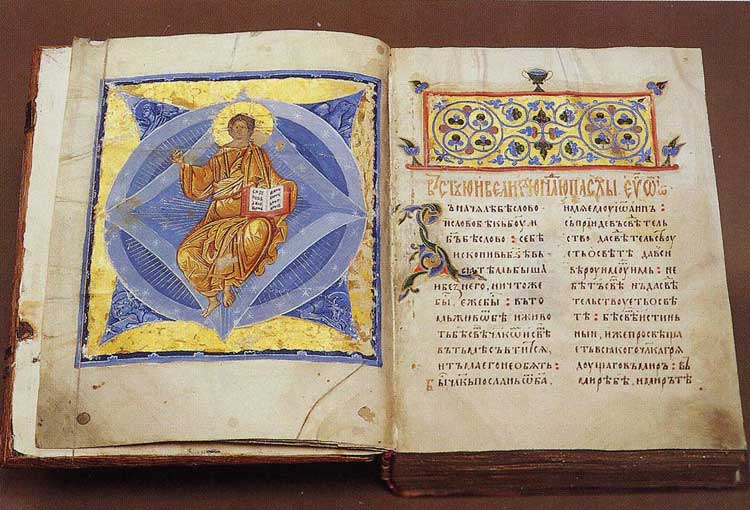 В стꙋю и великꙋю н҃лю пасхы еѵ҃ ѿ ѡ
ъ начялѣ бѣ слово
и слово бѣ къ б҃оу и
б҃ъ бѣ слово : се бѣ
искони къ б҃ꙋ
тѣмь бышѧ
и беѕ него, ничтоже
бы҃ еже бы҃ : въ то
мь живѡ бѣ и живо
ть бѣ свѣ чл҃кмъ и свѣ
ть въ тьмѣ свѣтисѧ,
и тъма его не обѧть :
Бы҃ чл҃къ посланъ ѿ б҃а,
имя емоу иѡаннъ
сь прииде въ свѣтель
ство да свѣтельствоу
еть о свѣтѣ да вси
вѣроу имоуть имь : не
бѣ тъ свѣ нъ да свѣ
тельствоуеть о свѣ
тѣ : бѣ свѣ истинь
ныи, иже просвѣща
еть всякого чл҃ка гря
доущаго въ миръ : въ
мирѣ бѣ, и миръ тѣ